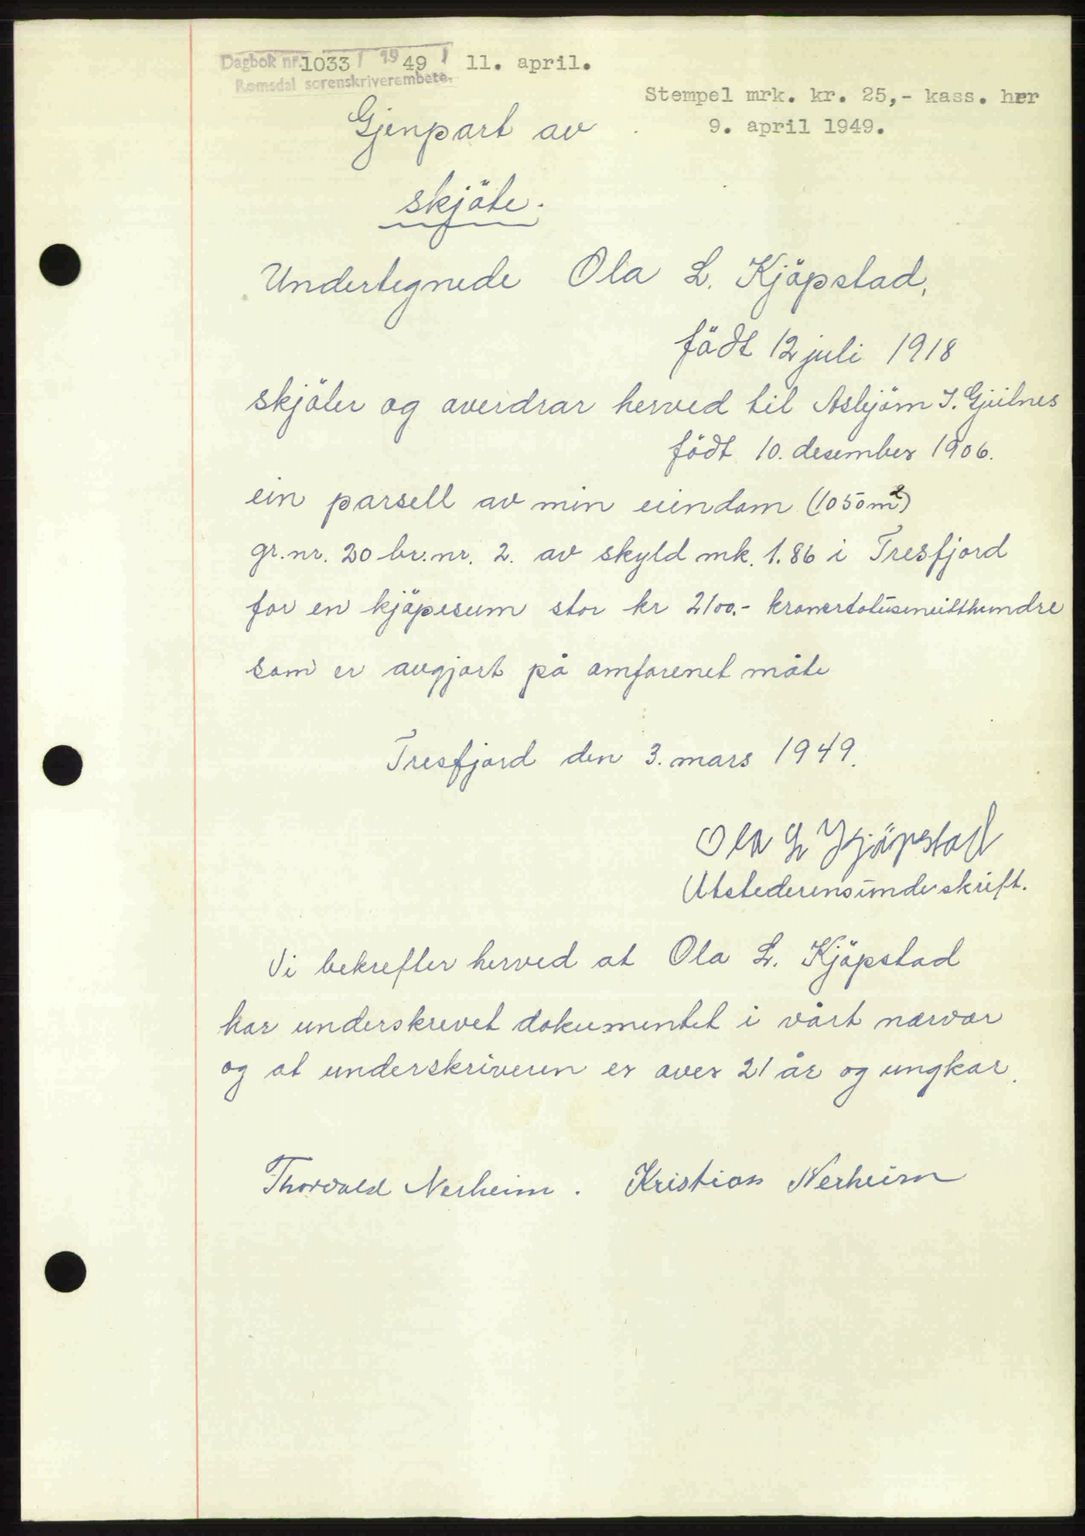 Dagbok nr. 1033 / 1949 / 11. april.
Romsdal sorenskriverembete.
Stempel mrk. kr. 25,- kass. her
9. april 1949.
Gjenpart av
skjöte.
Undertegnede Ola L. Kjöpstad,
födt 12 juli 1918
skjöter og overdrar herved til Asbjörn J. Gjeilnes
födt 10. desember 1906.
ein parsell av min eiendom (1050m²)
gr.nr. 20 br.nr. 2. av skyld mk. 1.86 i Tresfjord
for en kjöpesum stor kr 2100.- kronertotuseneitthundre
som er avgjort på omforenet måte
Tresfjord den 3. mars 1949.
Ola L Kjöpstad
Utstederens underskrift.
Vi bekrefter herved at Ola L. Kjöpstad
har underskrevet dokumentet i vårt nærvær
og at underskriveren er over 21 år og ungkar.
Thorvald Nerheim. Kristian Nerheim